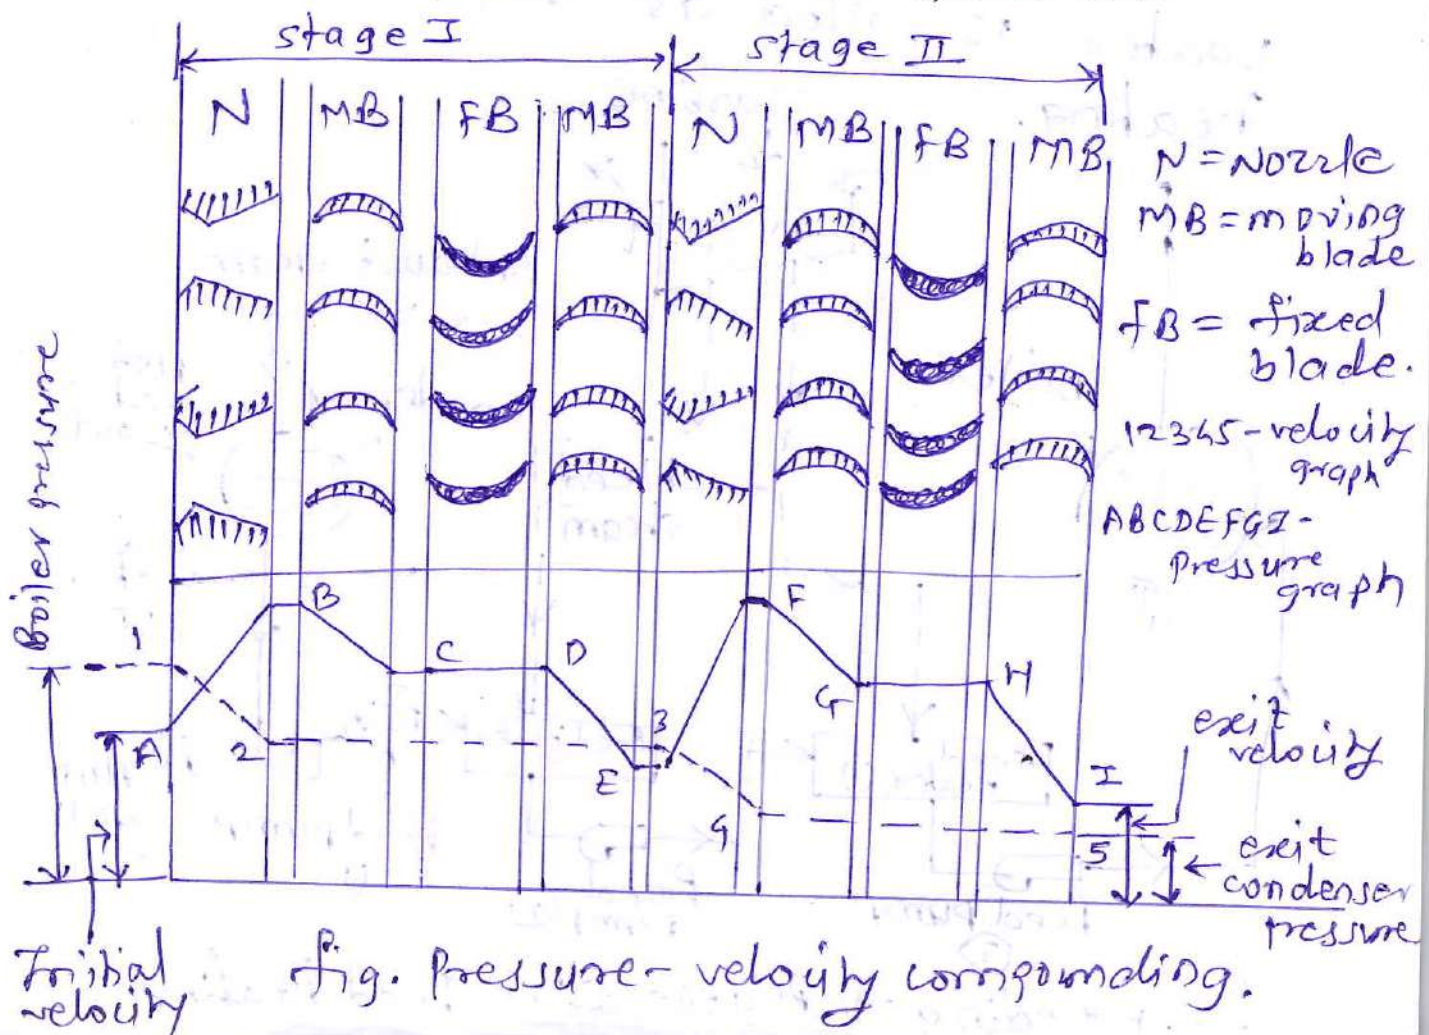 stage I
stage II
N MB FB MB N MB FB MB
N = Nozzle
MB = moving
blade
FB = fixed
blade.
12345 - velocity
graph
ABCDEFGI -
Pressure
graph
Boiler pressure
1
A
2
B
C
D
E
3
F
G
4
H
I
5
exit
velocity
exit
condenser
pressure
Initial
velocity
fig. Pressure - velocity compounding.